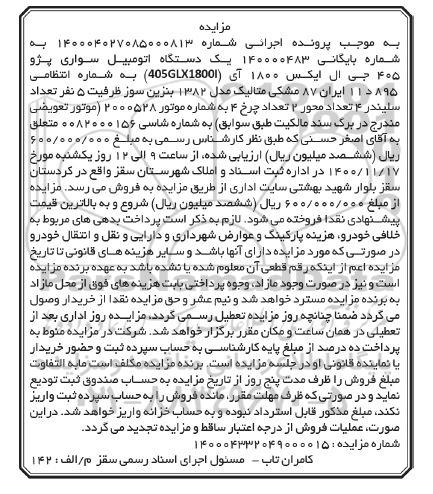 مزایده
به موجب پرونده اجرائی شماره ۱۴۰۰۰۴۰۲۷۰۸۵۰۰۰۸۱۳ به
شماره بایگانی ۱۴۰۰۰۰۴۸۳ یک دستگاه اتومبیل سواری پژو
۴۰۵ جی ال ایکس ۱۸۰۰ آی (405GLX1800I) به شماره انتظامی
۸۹۵ د ۱۱ ایران ۸۷ مشکی متالیک مدل ۱۳۸۲ بنزین سوز ظرفیت ۵ نفر تعداد
سلیندر ۴ تعداد محور ۲ تعداد چرخ ۴ به شماره موتور ۲۰۰۰۵۲۸ (موتور تعویضی
مندرج در برگ سند مالکیت طبق سوابق) به شماره شاسی ۰۰۸۲۰۰۰۱۵۶ متعلق
به آقای اصغر حسنی که طبق نظر کارشناس رسمی به مبلغ ۶۰۰/۰۰۰/۰۰۰
ریال (ششصد میلیون ریال) ارزیابی شده، از ساعت ۹ الی ۱۲ روز یکشنبه مورخ
۱۴۰۰/۱۱/۱۷ در اداره ثبت اسناد و املاک شهرستان سقز واقع در کردستان
سقز بلوار شهید بهشتی سایت اداری از طریق مزایده به فروش می رسد. مزایده
از مبلغ ۶۰۰/۰۰۰/۰۰۰ ریال (ششصد میلیون ریال) شروع و به بالاترین قیمت
پیشنهادی نقدا فروخته می شود. لازم به ذکر است پرداخت بدهی های مربوط به
خلافی خودرو، هزینه پارکینگ و عوارض شهرداری و دارایی و نقل و انتقال خودرو
در صورتی که مورد مزایده دارای آنها باشد و سایر هزینه های قانونی تا تاریخ
مزایده اعم از اینکه رقم قطعی آن معلوم شده یا نشده باشد به عهده برنده مزایده
است و نیز در صورت وجود مازاد، وجوه پرداختی بابت هزینه های فوق از محل مازاد
به برنده مزایده مسترد خواهد شد و نیم عشر و حق مزایده نقدا از خریدار وصول
می گردد ضمنا چنانچه روز مزایده تعطیل رسمی گردد، مزایده روز اداری بعد از
تعطیلی در همان ساعت و مکان مقرر برگزار خواهد شد. شرکت در مزایده منوط به
پرداخت ده درصد از مبلغ پایه کارشناسی به حساب سپرده ثبت و حضور خریدار
یا نماینده قانونی او در جلسه مزایده است. برنده مزایده مکلف است مابه التفاوت
مبلغ فروش را ظرف مدت پنج روز از تاریخ مزایده به حساب صندوق ثبت تودیع
نماید و در صورتی که ظرف مهلت مقرر، مانده فروش را به حساب سپرده ثبت واریز
نکند، مبلغ مذکور قابل استرداد نبوده و به حساب خزانه واریز خواهد شد. در این
صورت، عملیات فروش از درجه اعتبار ساقط و مزایده تجدید می گردد.
شماره مزایده : ۱۴۰۰۰۴۳۳۲۰۴۹۰۰۰۰۱۵
کامران تاب - مسئول اجرای اسناد رسمی سقز م/الف : ۱۴۲